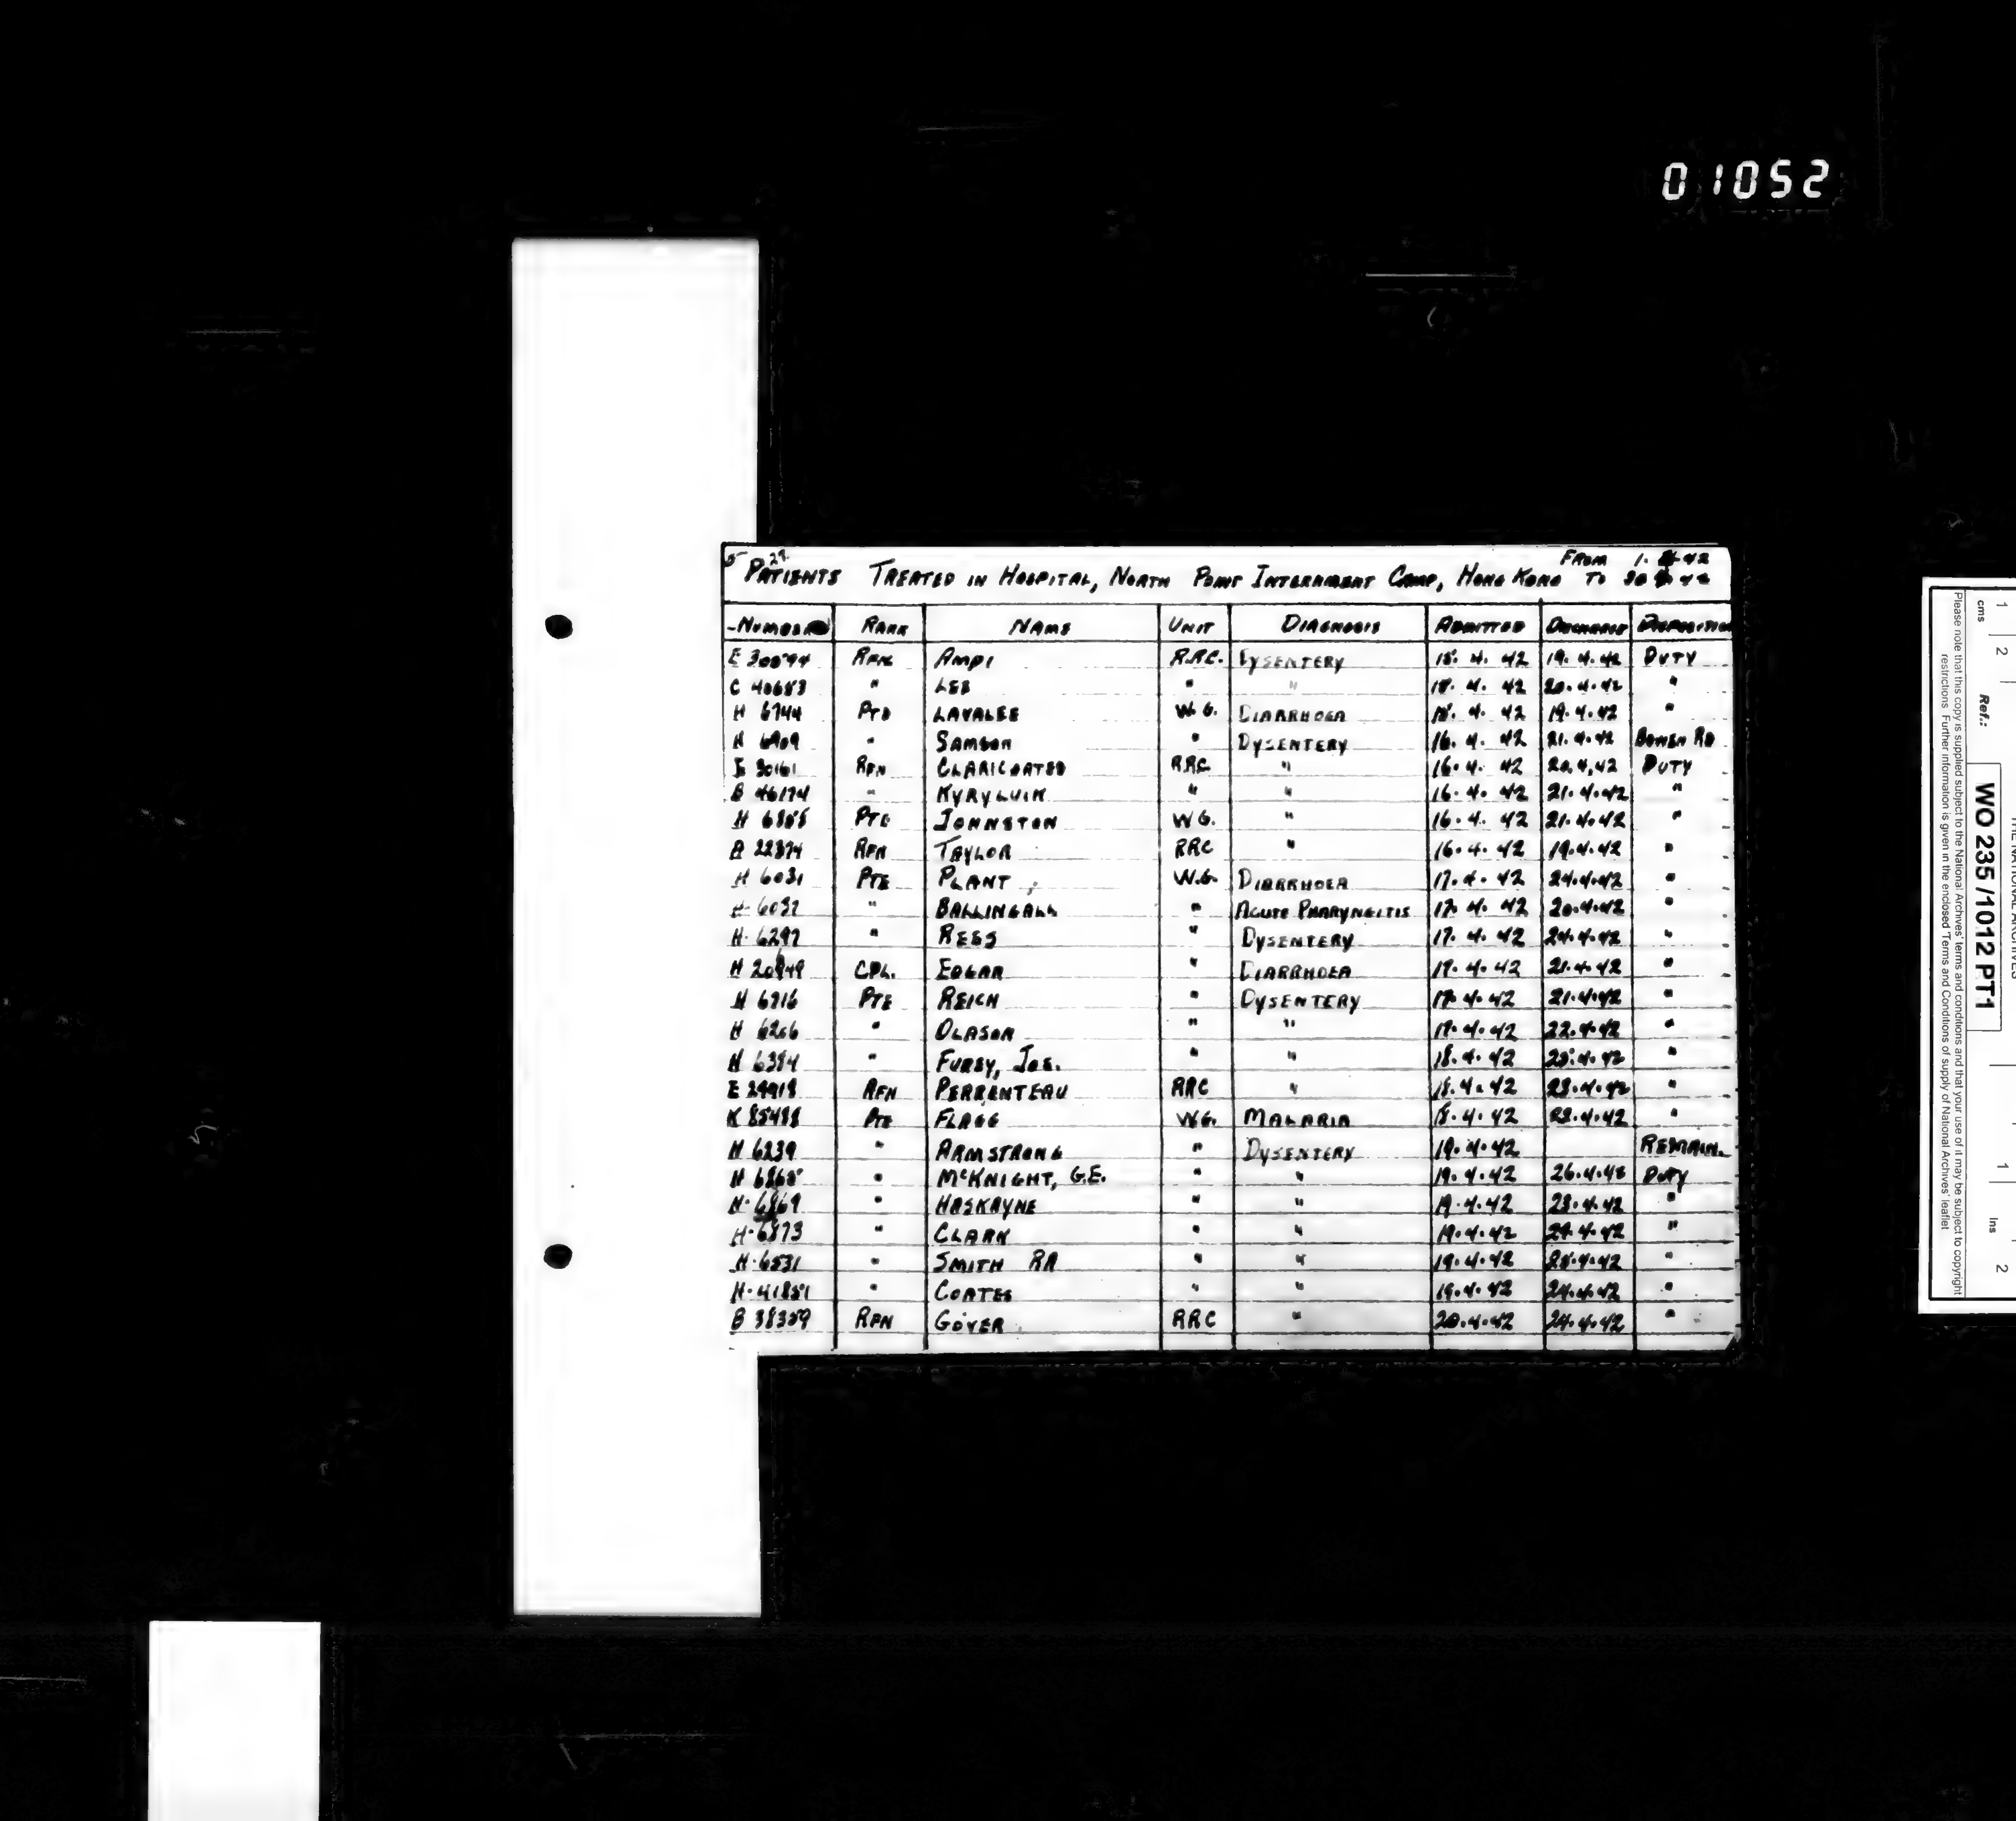 01052
5 29.
PATIENTS TREATED IN HOSPITAL, NORTH POINT INTERNMENT CAMP, HONG KONG FROM 1. 4. 42 TO 30 4 42
NUMBER RANK NAME UNIT DIAGNOSIS ADMITTED DISCHARGED DISPOSITION
RFN AMPI R.R.C. DYSENTERY 15. 4. 42 19. 4. 42 DUTY
C 40683 " LEE " " 20.4.42 "
H 6744 PTE LAVALEE W.G. DIARRHOEA 19.4.42 "
H 6909 " SAMSON " DYSENTERY 16. 4. 42 21. 4. 42 BOWEN RD
E 30161 RFN CLARICOATES RRC " 16. 4. 42 20.4.42 DUTY
B 46174 " KYRYLUIK " " 16. 4. 42 21.4.42 "
H PTE JOHNSTON W G. " 16. 4. 42 21.4.42 "
A 22894 RFN TAYLOR RRC " 16. 4. 42 19.4.42 "
H 6031 PTE PLANT W.G. DIARRHOEA 17. 4. 42 24.4.42 "
H 6032 " BALLINGALL " ACUTE PHARYNGITIS 17. 4. 42 20.4.42 "
H. 6297 " REES " DYSENTERY 17. 4. 42 24.4.42 "
H CPL. EDGAR " DIARRHOEA 17. 4. 42 21.4.42 "
H 6716 PTE REICH " DYSENTERY 17.4.42 21.4.42 "
H 6266 " OLASON " " 17.4.42 22.4.42 "
H 6394 " FUREY, JOS. " " 18.4.42 "
E 29918 RFN PERRENTEAU RRC " 18.4.42 23.4.42 "
K 85488 PTE FLAGG W.G. MALARIA 18.4.42 23.4.42 "
H 6239 " ARMSTRONG " DYSENTERY 19.4.42 REMAIN.
H " McKNIGHT, G.E. " " 19.4.42 DUTY
H. 6869 " HASKAYNE " " 19.4.42 23.4.42 "
H. 6873 " CLARK " " 19.4.42 24.4.42 "
H. 6531 " SMITH RA " " 19.4.42 "
H. " COATES " " 19.4.42 24.4.42 "
B 38309 RFN GOYER RRC " 20.4.42 24.4.42 "
1 2
cms
Ref.:
WO 235/1012 PT1
THE NATIONAL ARCHIVES
1 Ins 2
Please note that this copy is supplied subject to the National Archives' terms and conditions and that your use of it may be subject to copyright
restrictions. Further information is given in the enclosed 'Terms and Conditions of supply of National Archives' leaflet